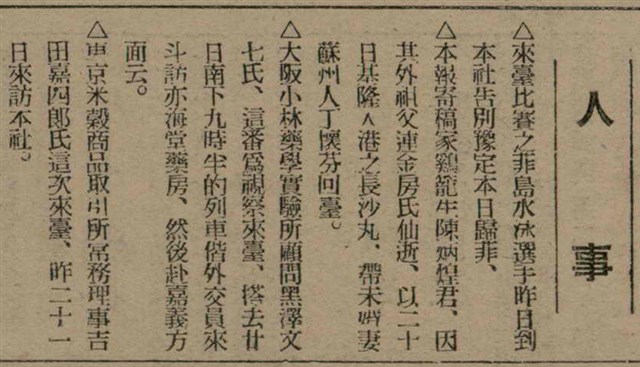 人事
△來臺比賽之菲島水泳選手昨日到
本社告別豫定本日歸菲、
△本報寄稿家鷄籠生陳炳煌君、因
其外祖父連金房氏仙逝、以二十
日基隆入港之長沙丸、帶未婚妻
蘇州人丁懷芬回臺。
△大阪小林藥學實驗所顧問黑澤文
七氏、這番爲視察來臺、搭去廿
日南下九時半的列車偕外交員來
斗訪亦海堂藥房、然後赴嘉義方
面云。
△東京米穀商品取引所常務理事吉
田嘉四郎氏這次來臺、昨二十一
日來訪本社。